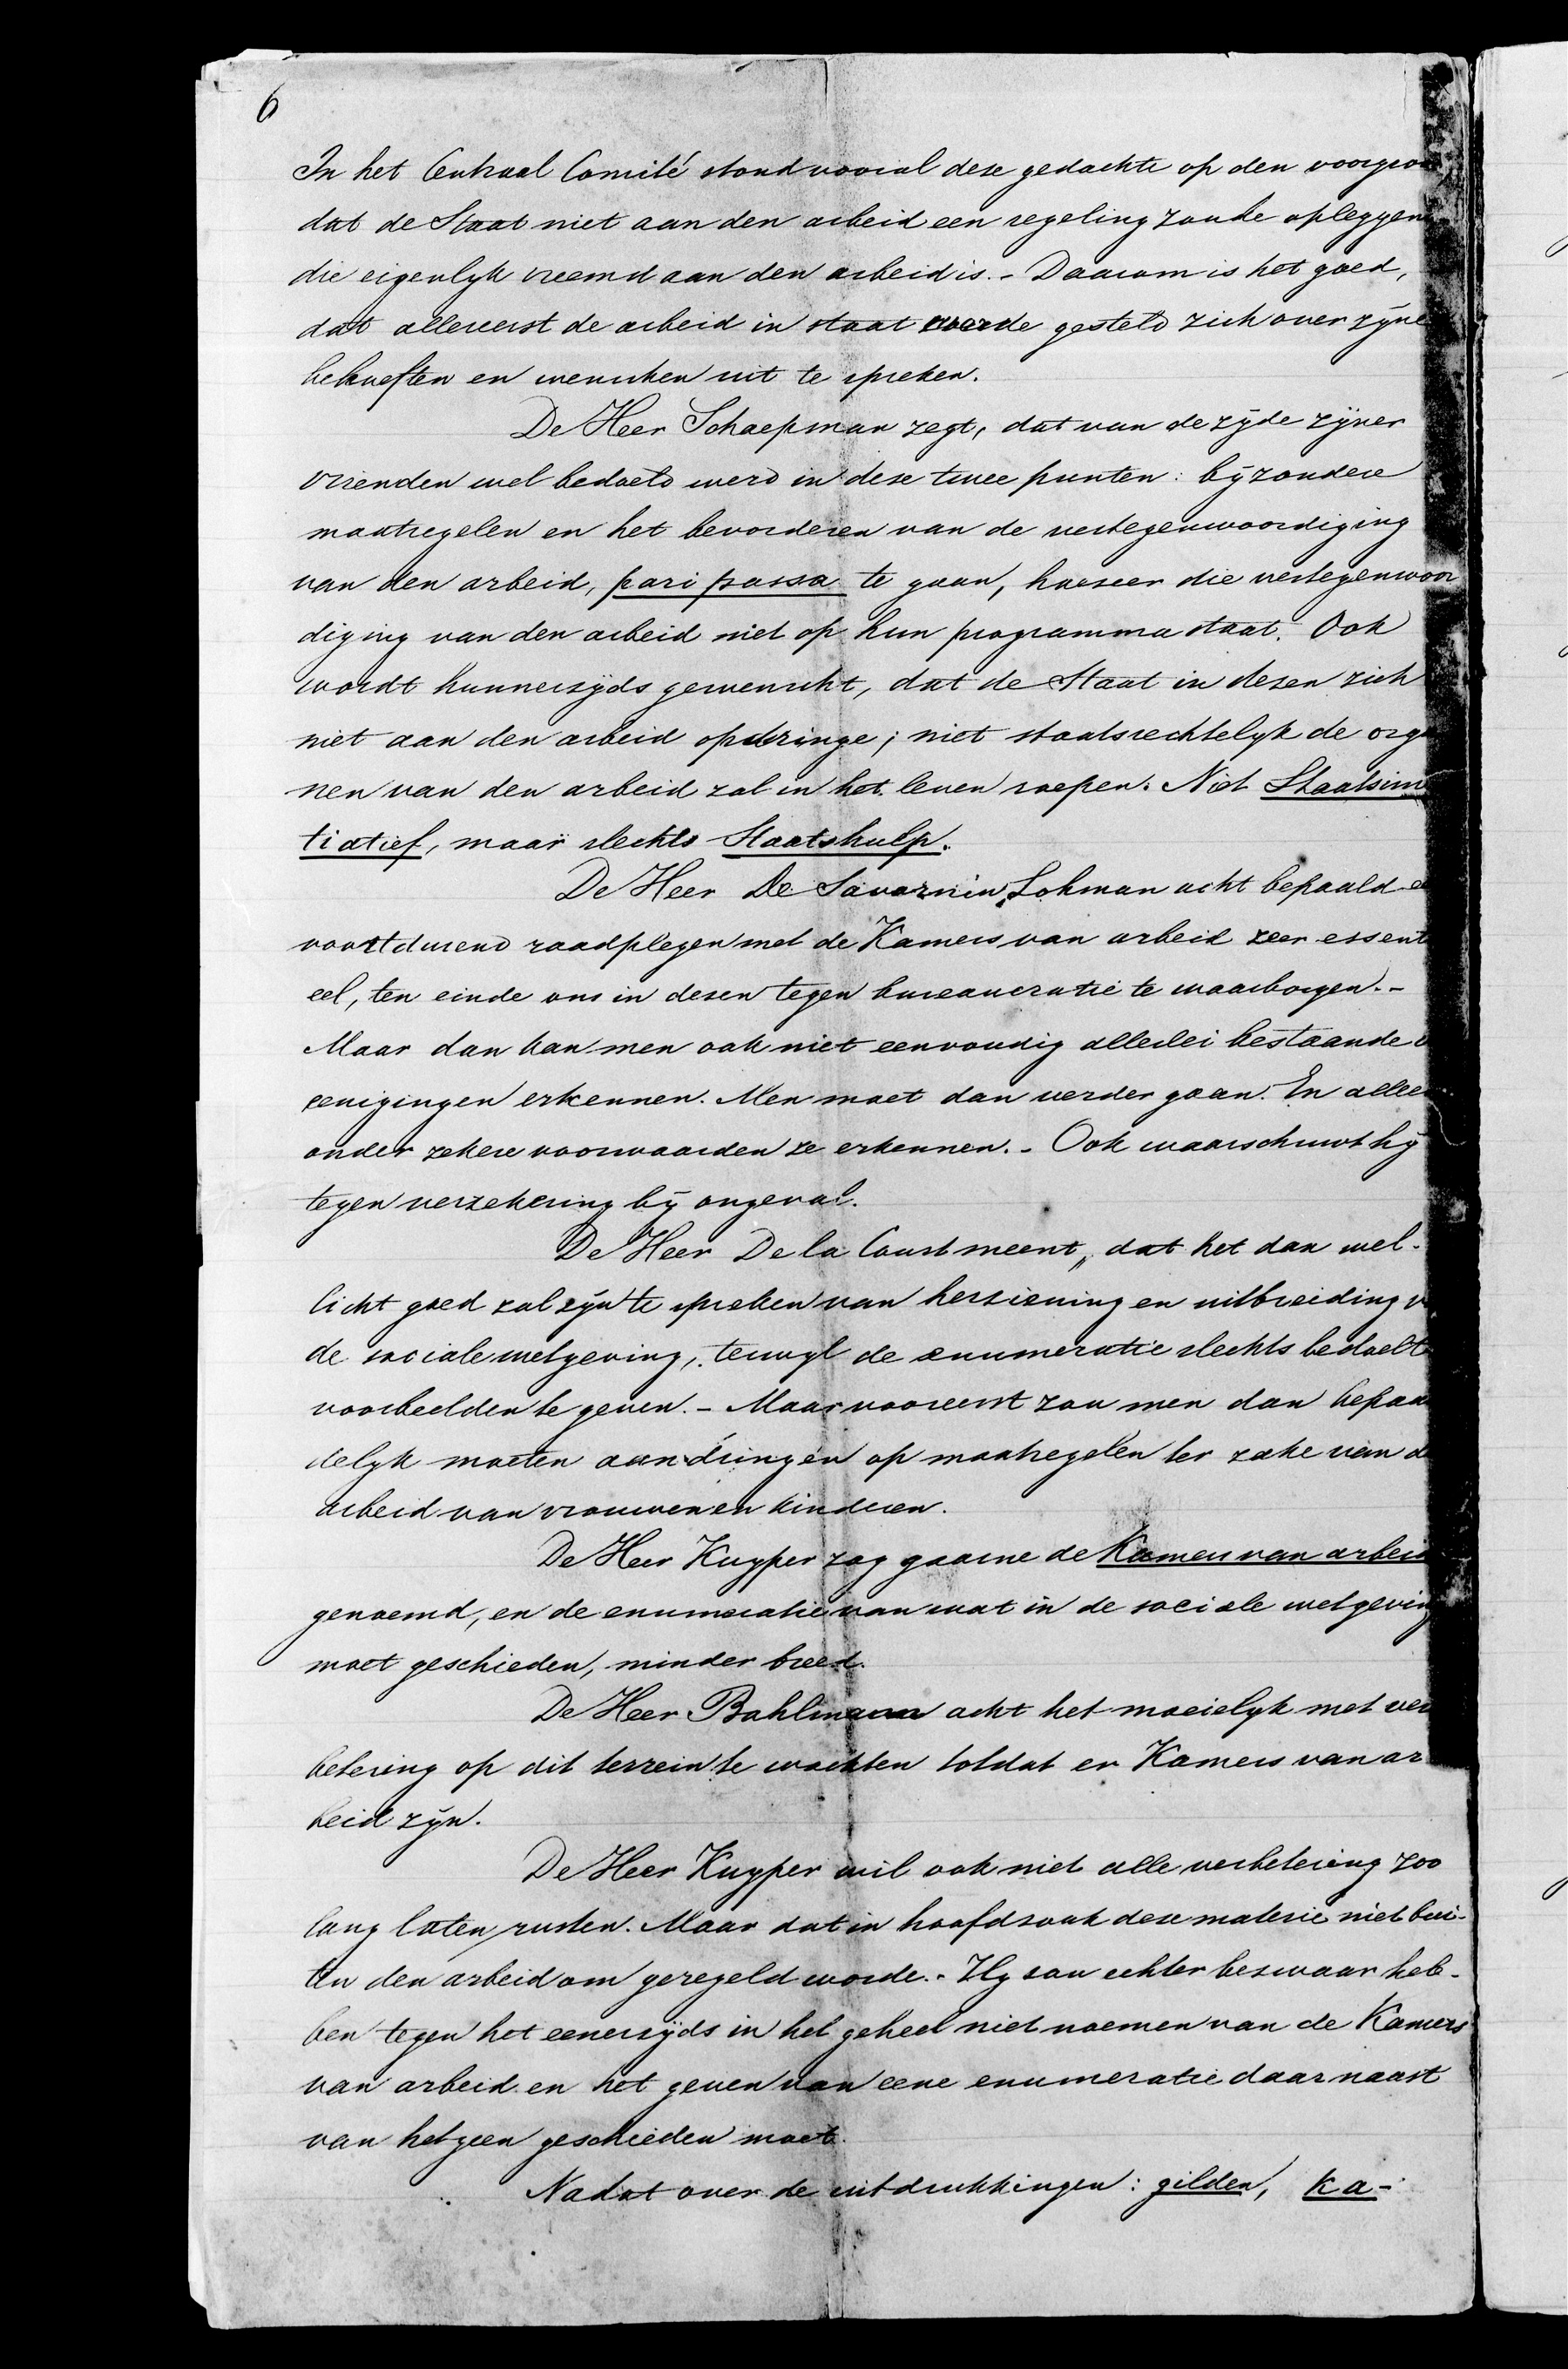 6
In het Centraal Comité stond vooral deze gedachte op den voorgron
dat de Staat niet aan den arbeid een regeling zoude opleggen
die eigenlyk vreemd aan den arbeid is. - Daarom is het goed,
dat allereerst de arbeid in staat worde gesteld zich over zyne
behoeften en wenschen uit te spreken.
De Heer Schaepman zegt, dat van de zyde zyner
vrienden wel bedoeld werd in deze twee punten: byzondere
maatregelen en het bevorderen van de vertegenwoordiging
van den arbeid, pari passa te gaan, hoezeer die vertegenwoor
diging van den arbeid niet op hun programma staat. Ook
wordt hunnerzyds gewenscht, dat de Staat in dezen zich
niet aan den arbeid opdringe; niet staatsrechtelyk de orga
nen van den arbeid zal in het leven roepen. Niet Staatsini
tiatief, maar slechts Staatshulp.
De Heer De Savornin Lohman acht bepaald ee
voortdurend raadplegen met de Kamers van arbeid zeer essenti
eel, ten einde ons in dezen tegen bureaucratie te waarborgen. -
Maar dan kan men ook niet eenvoudig allerlei bestaande v
eenigingen erkennen. Men moet dan verder gaan. En alleen
onder zekere voorwaarden ze erkennen. - Ook waarschuwt hy
tegen verzekering by ongeval.
De Heer De la Court meent, dat het dan wel-
licht goed zal zyn te spreken van herziening en uitbreiding v
de sociale wetgeving, terwyl de enumeratie slechts bedoelt
voorbeelden te geven. - Maar vooreerst zou men dan bepaa
delyk moeten aandringen op maatregelen ter zake van de
arbeid van vrouwen en kinderen.
De Heer Kuyper zag gaarne de Kamers van arbeid
genoemd, en de enumeratie van wat in de sociale wetgeving
moet geschieden, minder breed.
De Heer Bahlmann acht het moeielyk met ver
betering op dit terrein te wachten totdat er Kamers van ar
beid zyn.
De Heer Kuyper wil ook niet alle verbetering zoo
lang laten rusten. Maar dat in hoofdzaak deze materie niet bui-
ten den arbeid om geregeld worde. - Hy zou echter bezwaar heb-
ben tegen het eenerzyds in het geheel niet noemen van de Kamers
van arbeid en het geven van eene enumeratie daarnaast
van hetgeen geschieden moet.
Nadat over de uitdrukkingen: gilden, ka-